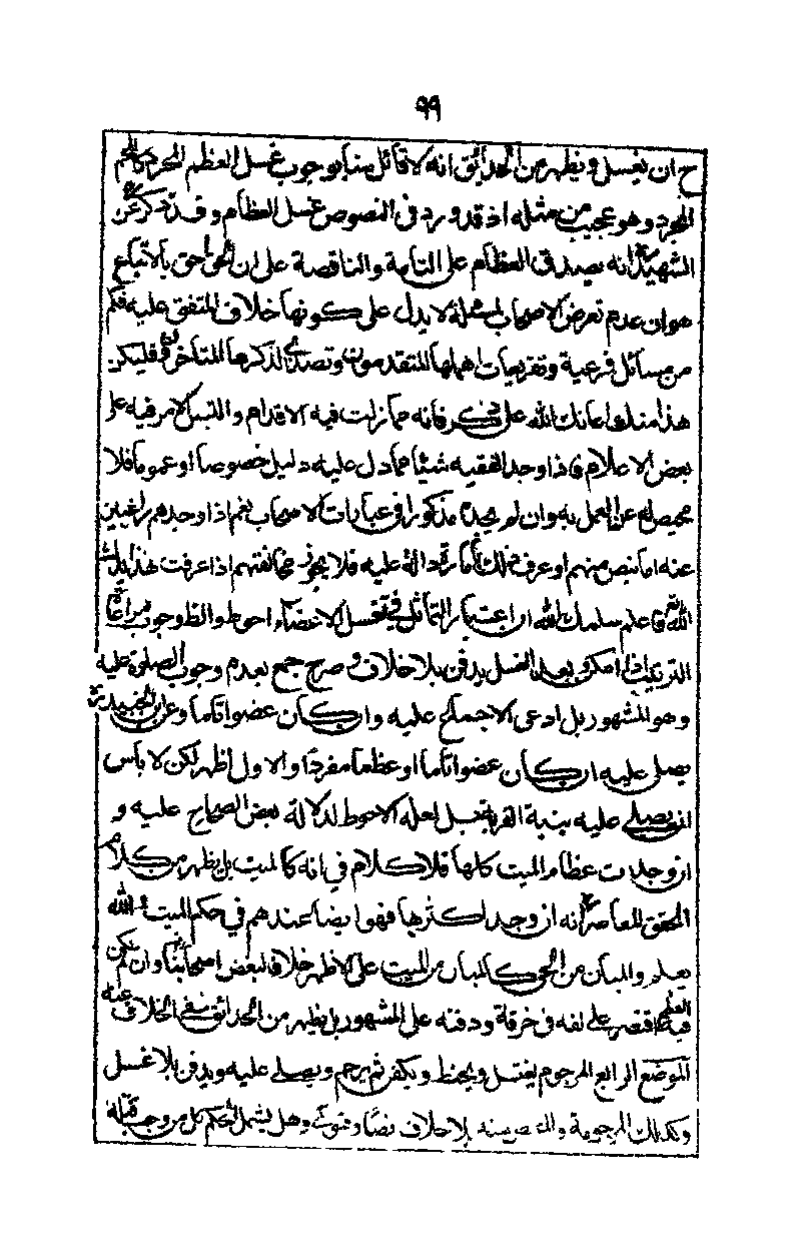 ٩٩
ح ان يغسل ويظهر من الحدائق انه لا قائل منا بوجوب غسل العظم المجرد كاللحم
المجرد وهو عجيب من مثله اذ قد ورد في النصوص غسل العظام وقد ذكر عن
الشهيد انه يصدق العظام على التامة والناقصة على ان الحق احق بالاتباع
هو ان عدم تعرض الاصحاب لمسئلة لا يدل على كونها خلاف المتفق عليه فكم
من مسائل فرعية وتفريعات اهملها المتقدمون وتصدى لذكرها المتأخرون فليكن
هذا منك اعانك الله على ذكر فانه مما زلت فيه الاقدام والتبس الامر فيه على
بعض الاعلام فاذا وجد الفقيه شيئا مما دل عليه دليل خصوصا او عموما فلا
محيص له عن العمل به وان لم يجده مذكورا في عبارات الاصحاب نعم اذا وجدهم راغبين
عنه اما بنص منهم او عرف ذلك بامارة دالة عليه فلا يجوز مخالفتهم اذا عرفت هذا
الله فاعلم سلمك الله ان اعتبار التماثل في تغسل الاعضاء احوط والظ وجوب مراعاة
الترتيب اذا امكن وبعد الغسل يدفن بلا خلاف وصرح جمع بعدم وجوب الصلوة عليه
وهو المشهور بل ادعى الاجماع عليه وان كان عضوا تاما وعن ابن الجنيد انه
يصلى عليه ان كان عضوا تاما او عظما مفردا والاول اظهر لكن لا باس
ان يصلى عليه بنية القربة بل لعله الاحوط لدلالة بعض الصحاح عليه و
ان وجدت عظام الميت كلها فلا كلام في انه كالميت بل يظهر من كلام
المحقق المعاصر انه ان وجد اكثرها فهو ايضا عندهم في حكم الميت والله
يعلم والمبان من الحي كالمبان من الميت على الاظهر خلافا لبعض اصحابنا وان لم يكن
فيه العظم اقتصر على لفه في خرقة ودفنه على المشهور بل يظهر من الحدائق نفي الخلاف عنه
الموضع الرابع المرجوم يغتسل ويحنط ويكفن ثم يرجم ويصلى عليه ويدفن بلا غسل
وكذلك المرجومة والمقتص منه بلا خلاف نصا وفتوى وهل يشمل الحكم كل من وجب قتله